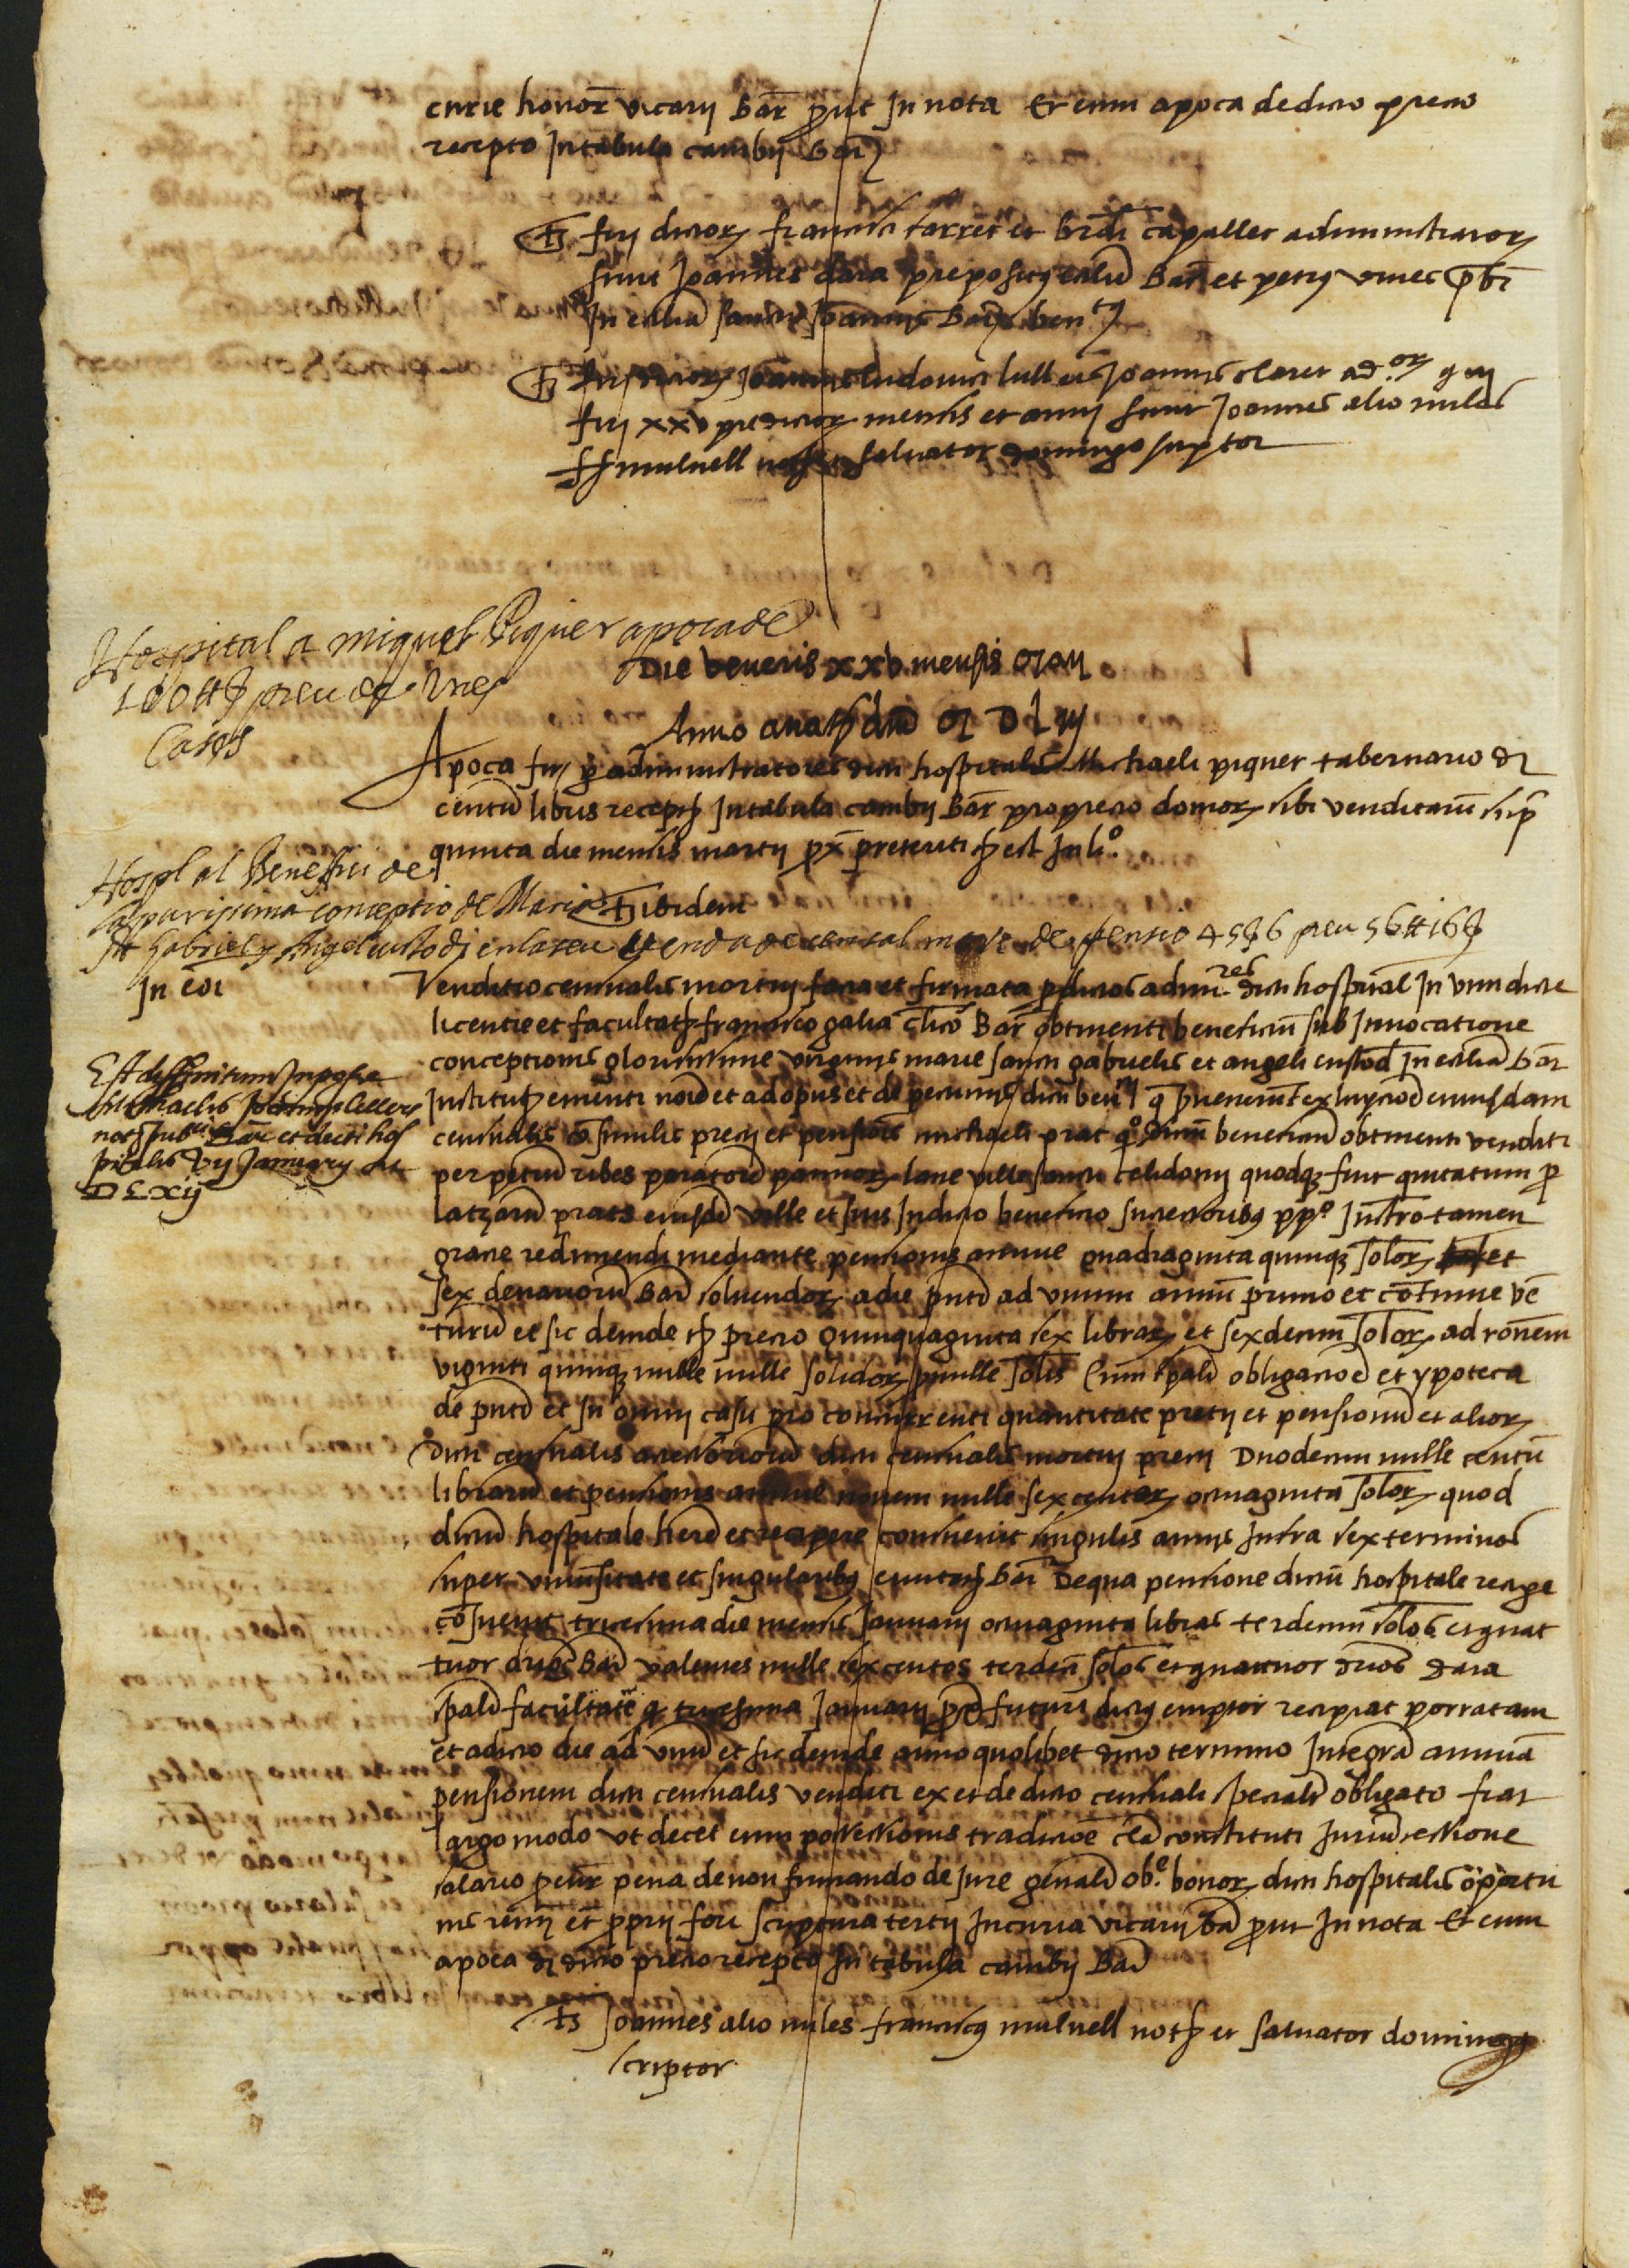 curie honor vicarij Bar prout In nota Et cum apoca de dicto precio
recepto In tabula cambij Bar
Ts firme dictor francisci tarret et bndi capaller administrator
sunt Joannes clara prepositus ecclie Bar et petrus vines pbr
In ecclia Bar ben
Ts firme dictor Joannis ludovici lull et Joannis claret ador qui
fir xxv predictor mensis et anni sunt Joannes alio miles
ff mulnell not et salvator domingo scriptor
Hospital a miquel Piquer apoca de
100 ll preu de unes
Cases
Die veneris xxv mensis maij
Anno a nat dni M D l iij
Apoca fir p administratores dicti hospitalis Michaeli piquer tabernario de
centu libris receptis In tabula cambij Bar pro precio domor sibi venditarum sup
quinta die mensis martij px preteriti est In li°.
Hospl al Benefici de
la purissima conceptio de Maria
St Gabriel y Angel custodi en la seu Venda de censal mort de pensio 45 s 6 preu 56 ll 16 s
Ts ibidem
In edi
Venditio censualis mortuj facta et firmata p dictos admires dicti hospital In vim dicte
licentie et facultatis francisco galia clico Bar obtinenti beneficiu sub Invocatione
conceptionis gloriosissime virginis marie sancti gabrielis et angeli custod In ecclia Bar
Instituti ementi noie et ad opus et de pecunijs dicti ben q pvenerunt ex luycioe cuiusdam
censualis co similis precij et pensionis michaeli prat q° dictu beneficiu obtinenti venditi
per petru ribes paratore pannor lane ville sancti celidonij quodq fuit quitatum p
latzaru prats eiusde ville et suis In dicto beneficio successoribus ppº Instro tamen
gratie redimendi mediante pensionis annue quadraginta quinq solor et
sex denarioru Bar solvendor a die pnti ad unum annu primo et continue ve
turu et sic deinde precio quinquaginta sex librar et sexdecim solor ad ronem
viginti quinq mille mille solidor p mille solis Cum spali obligatioe et ypoteca
de pnti et In omni casu pro concurrenti quantitate pretij et pensionu et alior
dicti censualis accessorioru dicti censualis mortuj precij Duodecim mille centu
libraru et pensionis annue novem mille sexcentor octuaginta solor quod
dictu hospitale here et recipere consuevit singulis annis Intra sex terminos
super universitate et singularibus civitatis Bar De qua pensione dictu hospitale recipe
cosuevit tricesima die mensis Januarij octuaginta libras terdecim solos et quat
tuor drios Bar valentes mille sexcentos terdeci solos et quattuor drios data
spali facultate q tricesima Januarij px futuri dictus emptor recipiat porratam
et a dicto die ad unu et sic deinde anno quolibet dicto termino Integra annua
pensionem dicti censualis venditi ex et de dicto censuali specialr obligato fiat
largo modo ut decet cum possessionis traditioe cla constituti Juriu cessione
salario petir pena de non firmando de Jure genali ob.e bonor dicti hospitalis oportu
nis renij et pprij fori scriptura tertij In curia vicarij ba prout In nota Et cum
apoca de dicto precio recepto In tabula cambij Bar
Est diffinitum In posse
Michaelis Joannis Celles
not pub Bar et dicti hos
pitalis vij January M
D LXij
Ts Joannes alio miles franciscus mulnell not et salvator domingo
scriptor